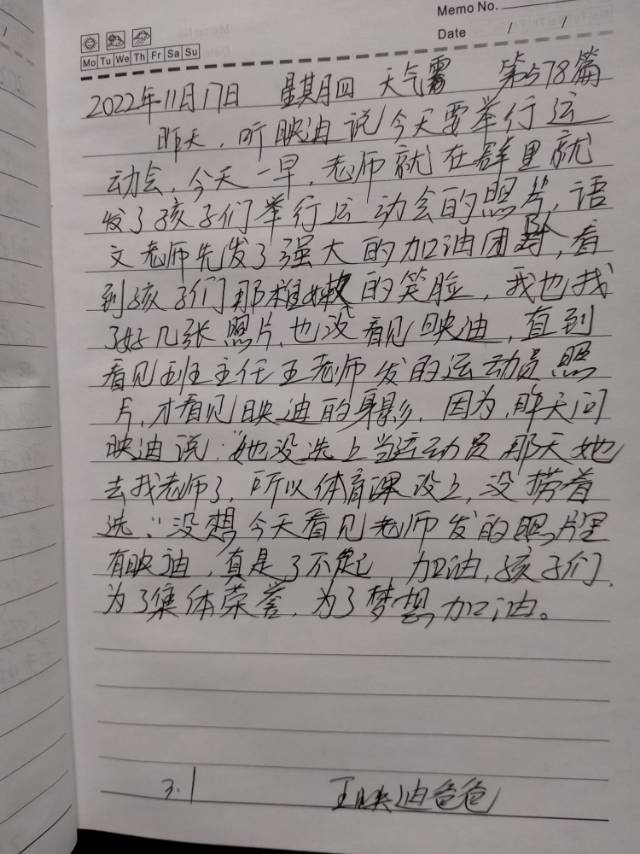 Memo No.
Mo Tu We Th Fr Sa Su
Date / /
2022年11月17日 星期四 天气雾 第578篇
昨天，听映迪说今天要举行运
动会，今天一早，老师就在群里就
发了孩子们举行运动会的照片，语
文老师先发了强大的加油团队，看
到孩子们那稚嫩的笑脸，我也找
了好几张照片，也没看见映迪，直到
看见班主任王老师发的运动员照
片，才看见映迪的身影，因为，昨天问
映迪说："她没选上当运动员那天她
去找老师了，所以体育课没上，没捞着
选"没想今天看见老师发的照片里
有映迪，真是了不起 加油，孩子们，
为了集体荣誉，为了梦想，加油。
3.1 王映迪爸爸